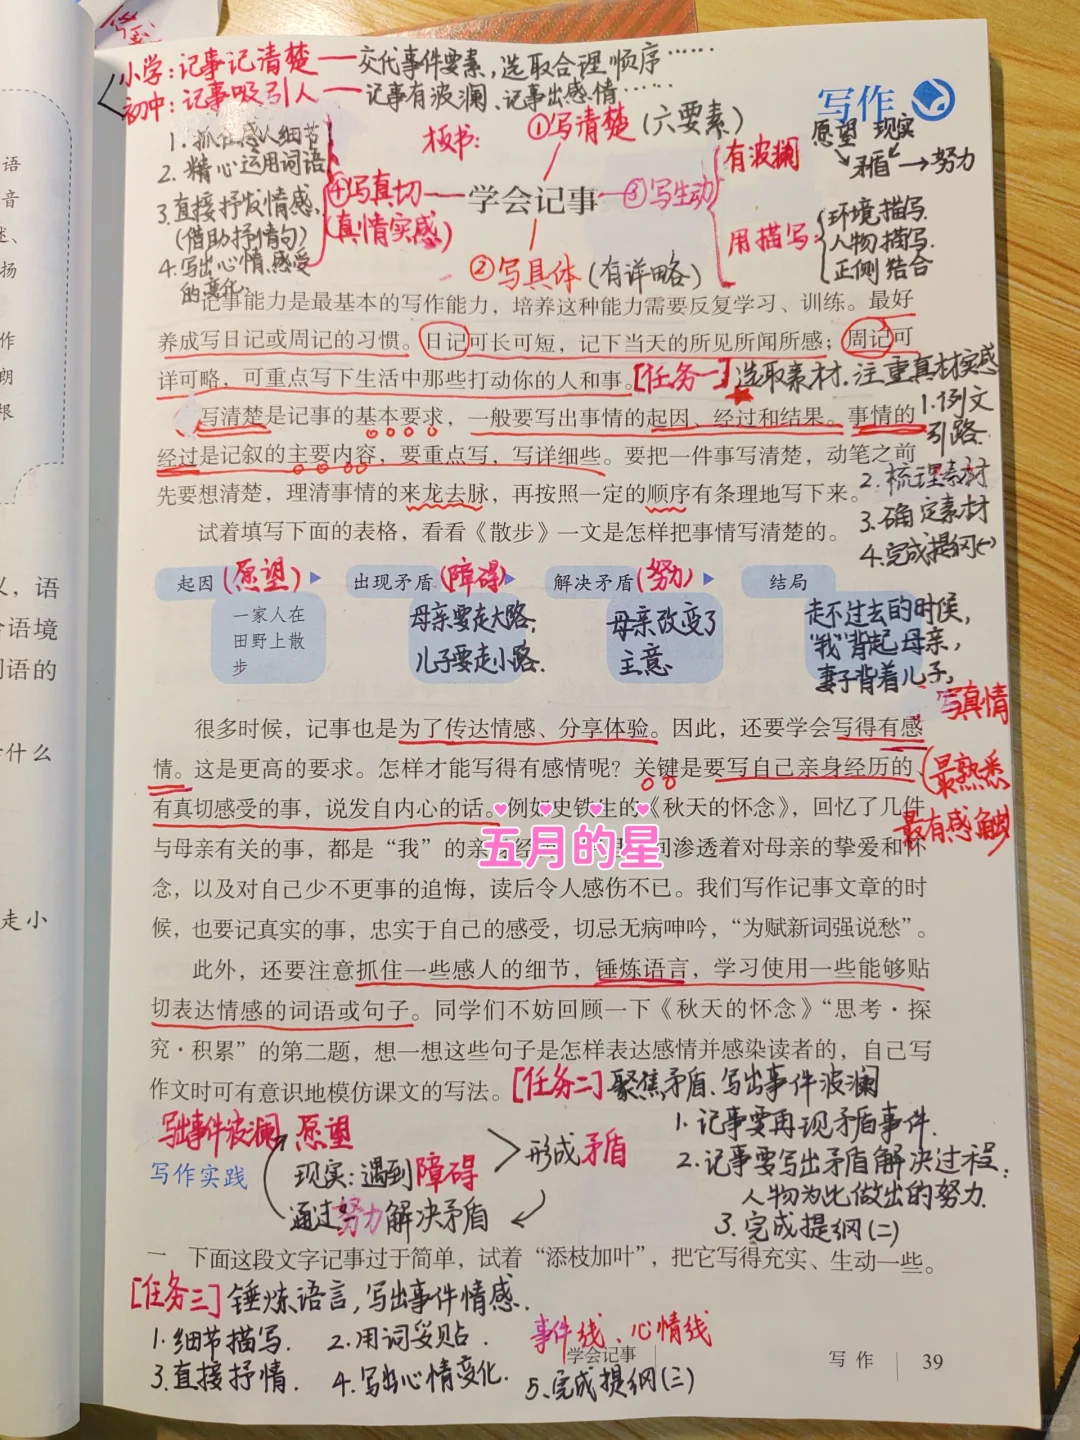 小学：记事记清楚——交代事件要素，选取合理顺序……
初中：记事吸引人——记事有波澜、记事出感情……
写作
板书：
①写清楚（六要素）
愿望 现实
矛盾→努力
1.抓住感人细节
2.精心运用词语
3.直接抒发情感、
（借助抒情句）
4.写出心情、感受
的变化
④写真切
（真情实感）
学会记事
③写生动
有波澜
用描写
环境描写.
人物描写.
正侧结合
②写具体（有详略）
记事能力是最基本的写作能力，培养这种能力需要反复学习、训练。最好
养成写日记或周记的习惯。日记可长可短，记下当天的所见所闻所感；周记可
详可略，可重点写下生活中那些打动你的人和事。
[任务一]选取素材.注重真材实感
写清楚是记事的基本要求，一般要写出事情的起因、经过和结果。事情的
经过是记叙的主要内容，要重点写，写详细些。要把一件事写清楚，动笔之前
先要想清楚，理清事情的来龙去脉，再按照一定的顺序有条理地写下来。
1.例文
引路.
2.梳理素材
3.确定素材
4.完成提纲(一)
试着填写下面的表格，看看《散步》一文是怎样把事情写清楚的。
起因（愿望）
出现矛盾（障碍）
解决矛盾（努力）
结局
一家人在
田野上散
步
母亲要走大路，
儿子要走小路.
母亲改变了
主意
走不过去的时候，
“我”背起母亲，
妻子背着儿子，
写真情
很多时候，记事也是为了传达情感、分享体验。因此，还要学会写得有感
情。这是更高的要求。怎样才能写得有感情呢？关键是要写自己亲身经历的、
有真切感受的事，说发自内心的话。例如史铁生的《秋天的怀念》，回忆了几件
与母亲有关的事，都是“我”的亲身经
间渗透着对母亲的挚爱和怀
念，以及对自己少不更事的追悔，读后令人感伤不已。我们写作记事文章的时
候，也要记真实的事，忠实于自己的感受，切忌无病呻吟，“为赋新词强说愁”。
最熟悉
最有感触
五月的星
此外，还要注意抓住一些感人的细节，锤炼语言，学习使用一些能够贴
切表达情感的词语或句子。同学们不妨回顾一下《秋天的怀念》“思考·探
究·积累”的第二题，想一想这些句子是怎样表达感情并感染读者的，自己写
作文时可有意识地模仿课文的写法。
[任务二]聚焦矛盾.写出事件波澜
1.记事要再现矛盾事件.
2.记事要写出矛盾解决过程：
人物为此做出的努力.
3.完成提纲(二)
写出事件波澜
愿望
现实：遇到障碍
形成矛盾
通过努力解决矛盾
写作实践
一 下面这段文字记事过于简单，试着“添枝加叶”，把它写得充实、生动一些。
[任务三]锤炼语言，写出事件情感.
1.细节描写. 2.用词妥贴.
事件线、心情线
3.直接抒情. 4.写出心情变化. 5.完成提纲(三)
学会记事
写作 39
语
音
迷、
扬
作
朗
根
义，语
合语境
词语的
什么
走小